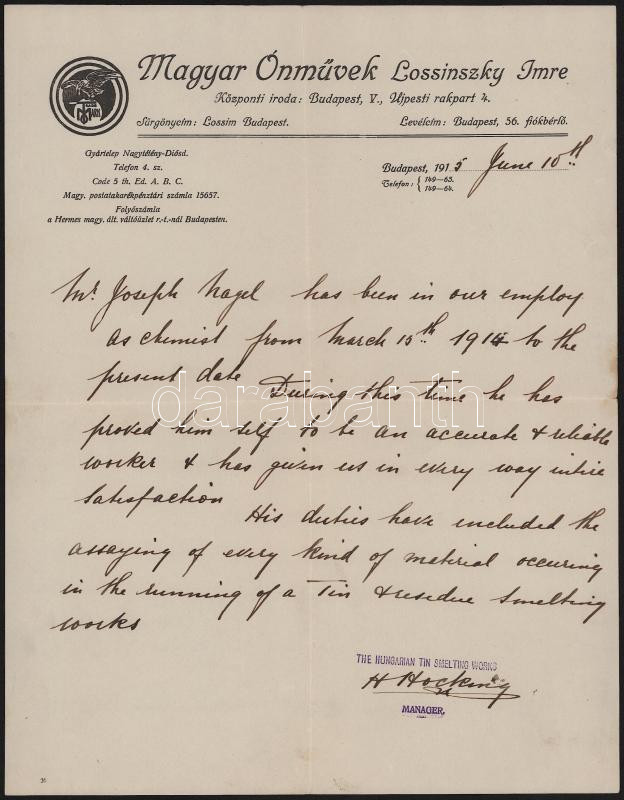 Magyar Ónművek Lossinszky Imre
Központi iroda: Budapest, V., Ujpesti rakpart 4.
Sürgönycím: Lossim Budapest. Levélcím: Budapest, 56. fiókbérlő.
Gyártelep Nagytétény-Diósd.
Telefon 4. sz.
Code 5 th. Ed. A. B. C.
Magy. postatakarékpénztári számla 15657.
Folyószámla
a Hermes magy. ált. váltóüzlet r.-t.-nál Budapesten.
Budapest, 1915 June 10th
Telefon: { 149—63.
149—64.
Mr Joseph Nagel has been in our employ
as chemist from March 15th 1914 to the
present date During this time he has
proved him self to be an accurate & reliable
worker & has given us in every way intire
satisfaction
His duties have included the
assaying of every kind of material occuring
in the running of a Tin & residue smelting
works
darabanth
THE HUNGARIAN TIN SMELTING WORKS
H Hocking
MANAGER.